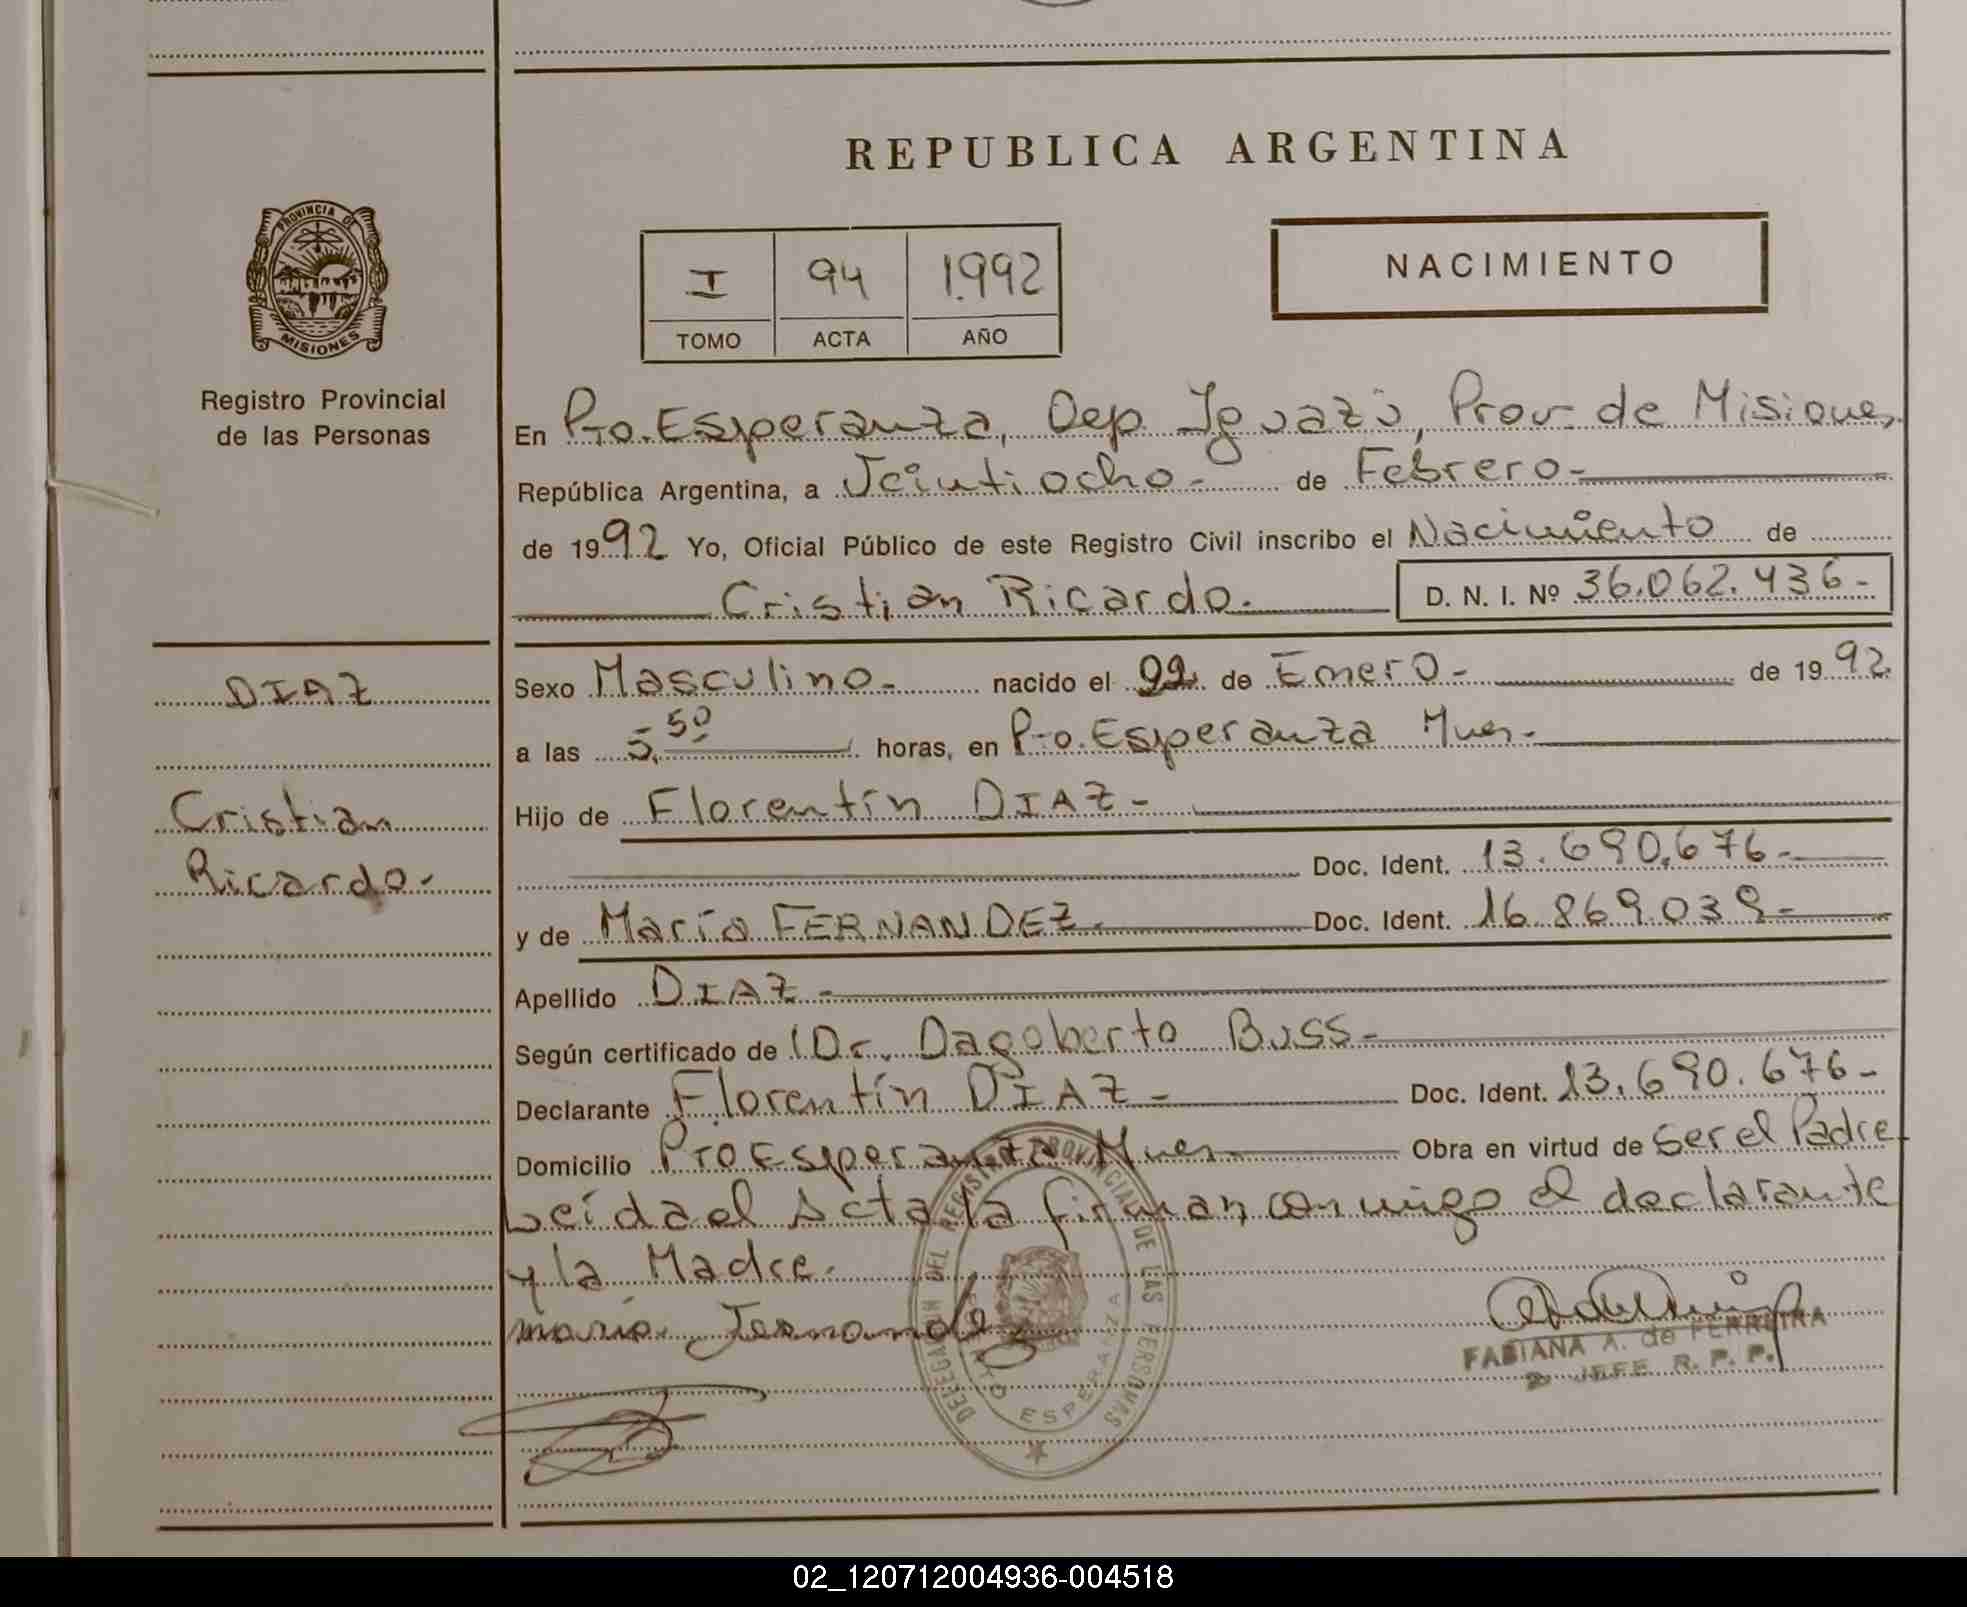 REPUBLICA ARGENTINA
PROVINCIA DE
MISIONES
Registro Provincial
de las Personas
I 94 1.992
TOMO ACTA AÑO
NACIMIENTO
En Pto. Esperanza, Dep. Iguazú, Prov. de Misiones.
República Argentina, a Veintiocho- de Febrero-
de 1992 Yo, Oficial Público de este Registro Civil inscribo el Nacimiento de
Cristian Ricardo. D. N. I. Nº 36.062.436-
DIAZ
Cristian
Ricardo.-
Sexo Masculino- nacido el de Enero- de 1992.
a las 5,50 horas, en Pto. Esperanza Mnes.-
Hijo de Florentín DIAZ-
Doc. Ident. 13.690.676-
y de María FERNANDEZ- Doc. Ident. 16.869.039-
Apellido DIAZ-
Según certificado de Dr. Dagoberto Buss-
Declarante Florentín DIAZ- Doc. Ident. 13.690.676-
Domicilio Pto Esperanza Mnes Obra en virtud de ser el Padre
Leída el Acta la firman conmigo el declarante
y la Madre.
maria Fernandez
DELEGACION DEL REGISTRO PROVINCIAL DE LAS PERSONAS
PTO ESPERANZA
FABIANA A. de FERREIRA
2 JEFE R. P. P.
02_120712004936-004518